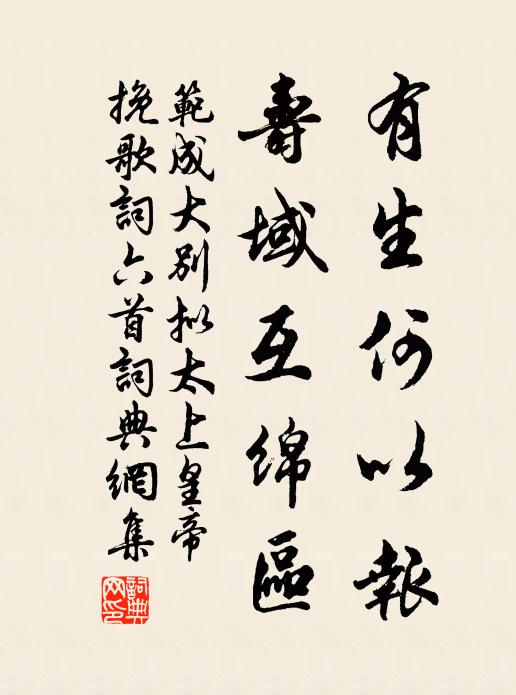 有生何以報
壽域互綿區
範成大別擬太上皇帝
挽歌詞六首詞典網集
詞典網印